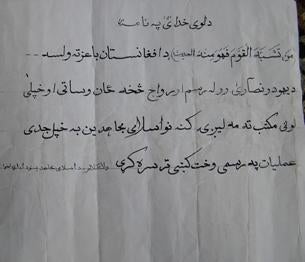 د لوی خدای په نامه
من تشبه القوم فهو منه (الحدیث) د افغانستان با عزته ولسه
دیهود و نصاری و وله رسم او رواج څخه ځان وساتی او خپلی
لوڼی مکتب ته مه لیږی. کنه نو اسلامی مجاهدین به خپل جدی
عملیات په رسمی وخت کښی تر سره کړی